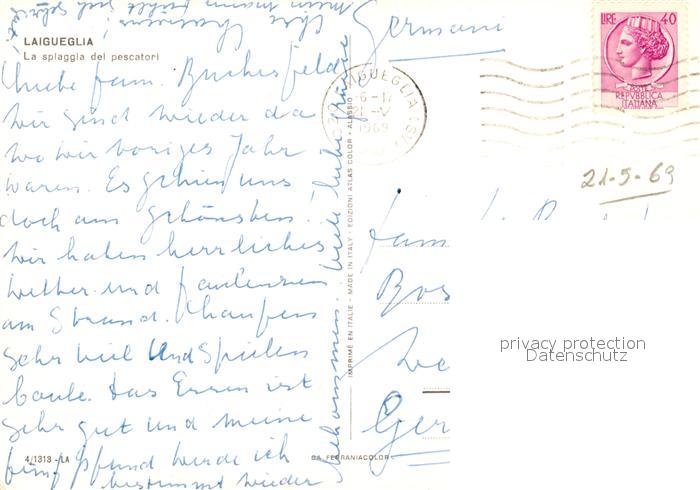 LAIGUEGLIA
La spiaggia dei pescatori
fam. Buchesfeld
wir sind wieder da
wo wir voriges Jahr
waren. Es gefiehl uns
doch am schönsten!
Wir haben herrliches
Wetter und faulenzen
am Strand. Schlafen
sehr viel und Spielen
Das Essen ist
sehr gut und meine
fünf Pfund werde ich
bestimmt wieder
bekommen. Viele liebe Grüße
4/1313 - LA
SA FERRANIACOLOR
IMPRIMÉ EN ITALIE - MADE IN ITALY - EDIZIONI ATLAS COLOR - ALASSIO
Germani
LAIGUEGLIA (SV)
1969
LIRE 40
POSTE
REPVBBLICA
ITALIANA
21-5-69
fam
Bos
Ger
privacy protection
Datenschutz